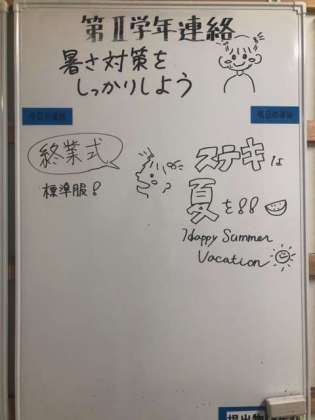 第Ⅱ学年連絡
暑さ対策を
しっかりしよう
終業式
標準服!
ステキな
夏を!!
Happy Summer
Vacation
提出物